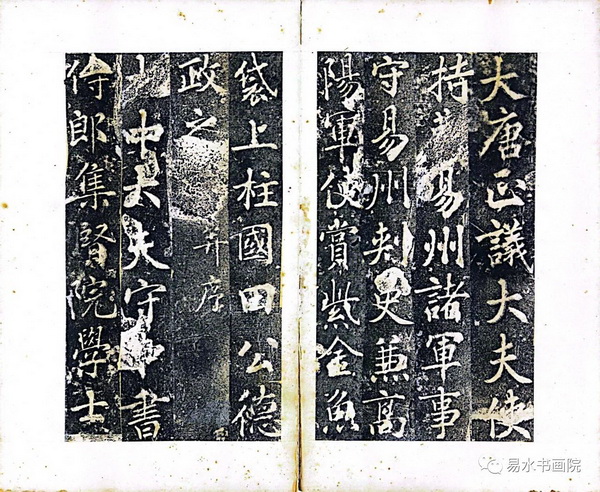 大唐正議大夫使
持節易州諸軍事
守易州刺史兼高
陽軍使賞紫金魚
袋上柱國田公德
政之 并序
中大夫守中書
侍郎集賢院學士
易水书画院